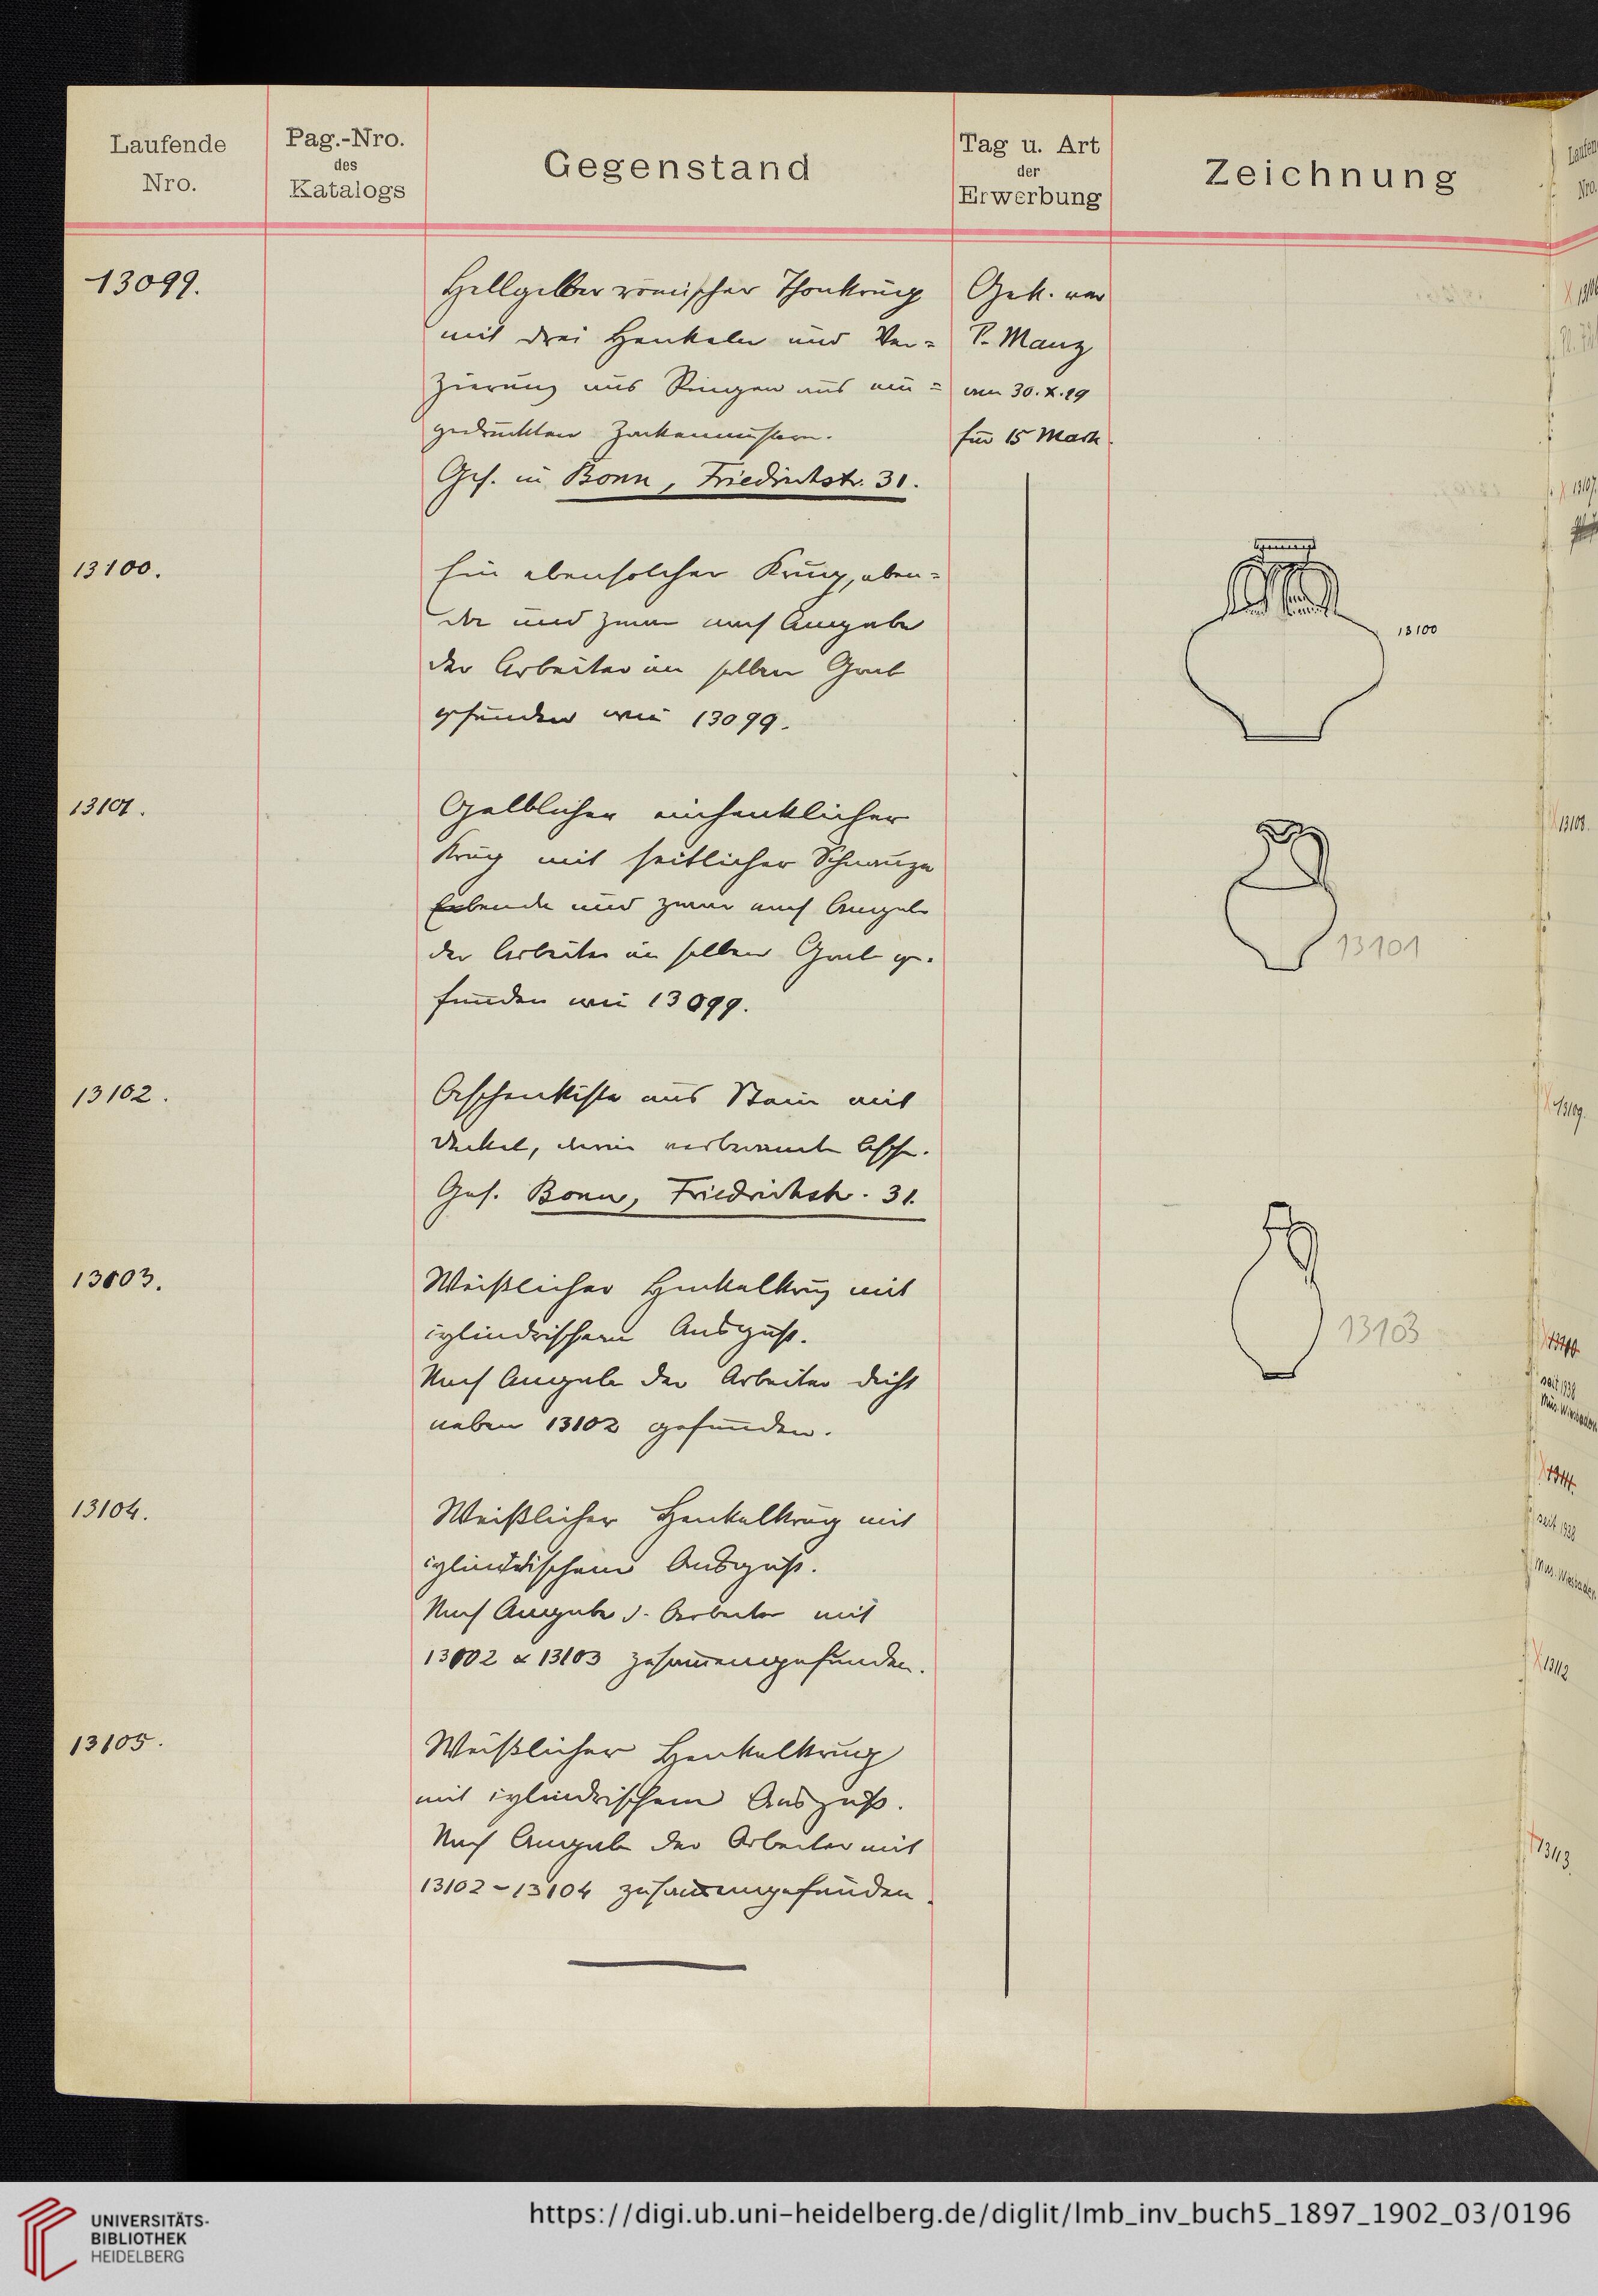 Laufende
Nro.
Pag.-Nro.
des
Katalogs
Gegenstand
Tag u. Art
der
Erwerbung
Zeichnung
13099.
Hellgelber römischer Thonkrug
mit drei Henkeln und Ver-
zierung aus Ringen aus ein-
gedrückten Zackenmustern.
Gef. in Bonn, Friedrichstr. 31.
Gek. von
P. Manz
am 30. X. 99
für 15 Mark
13100.
Ein ebensolcher Krug, eben-
da und zwar nach Angabe
der Arbeiter im selben Grab
gefunden wie 13099.
13100
13101.
Gelblicher einhenklicher
Krug mit seitlicher Schnauze
Ebenda und zwar nach Angabe
der Arbeiter im selben Grab ge-
funden wie 13099.
13101
13102.
Aschenkiste aus Stein mit
Deckel, darin verbrannte Asche.
Gef. Bonn, Friedrichstr. 31.
13103.
Weißlicher Henkelkrug mit
cylindrischem Ausguß.
Nach Angabe der Arbeiter dicht
neben 13102 gefunden.
13103
13104.
Weißlicher Henkelkrug mit
cylindrischem Ausguß.
Nach Angabe d. Arbeiter mit
13102 & 13103 zusammengefunden.
13105.
Weißlicher Henkelkrug
mit cylindrischem Ausguß.
Nach Angabe der Arbeiter mit
13102-13104 zusammengefunden.
13107.
13108.
13109.
seit 1938
Mus. Wiesbaden
seit 1938
Mus. Wiesbaden
13112
13113.
UNIVERSITÄTS-
BIBLIOTHEK
HEIDELBERG
https://digi.ub.uni-heidelberg.de/diglit/lmb_inv_buch5_1897_1902_03/0196